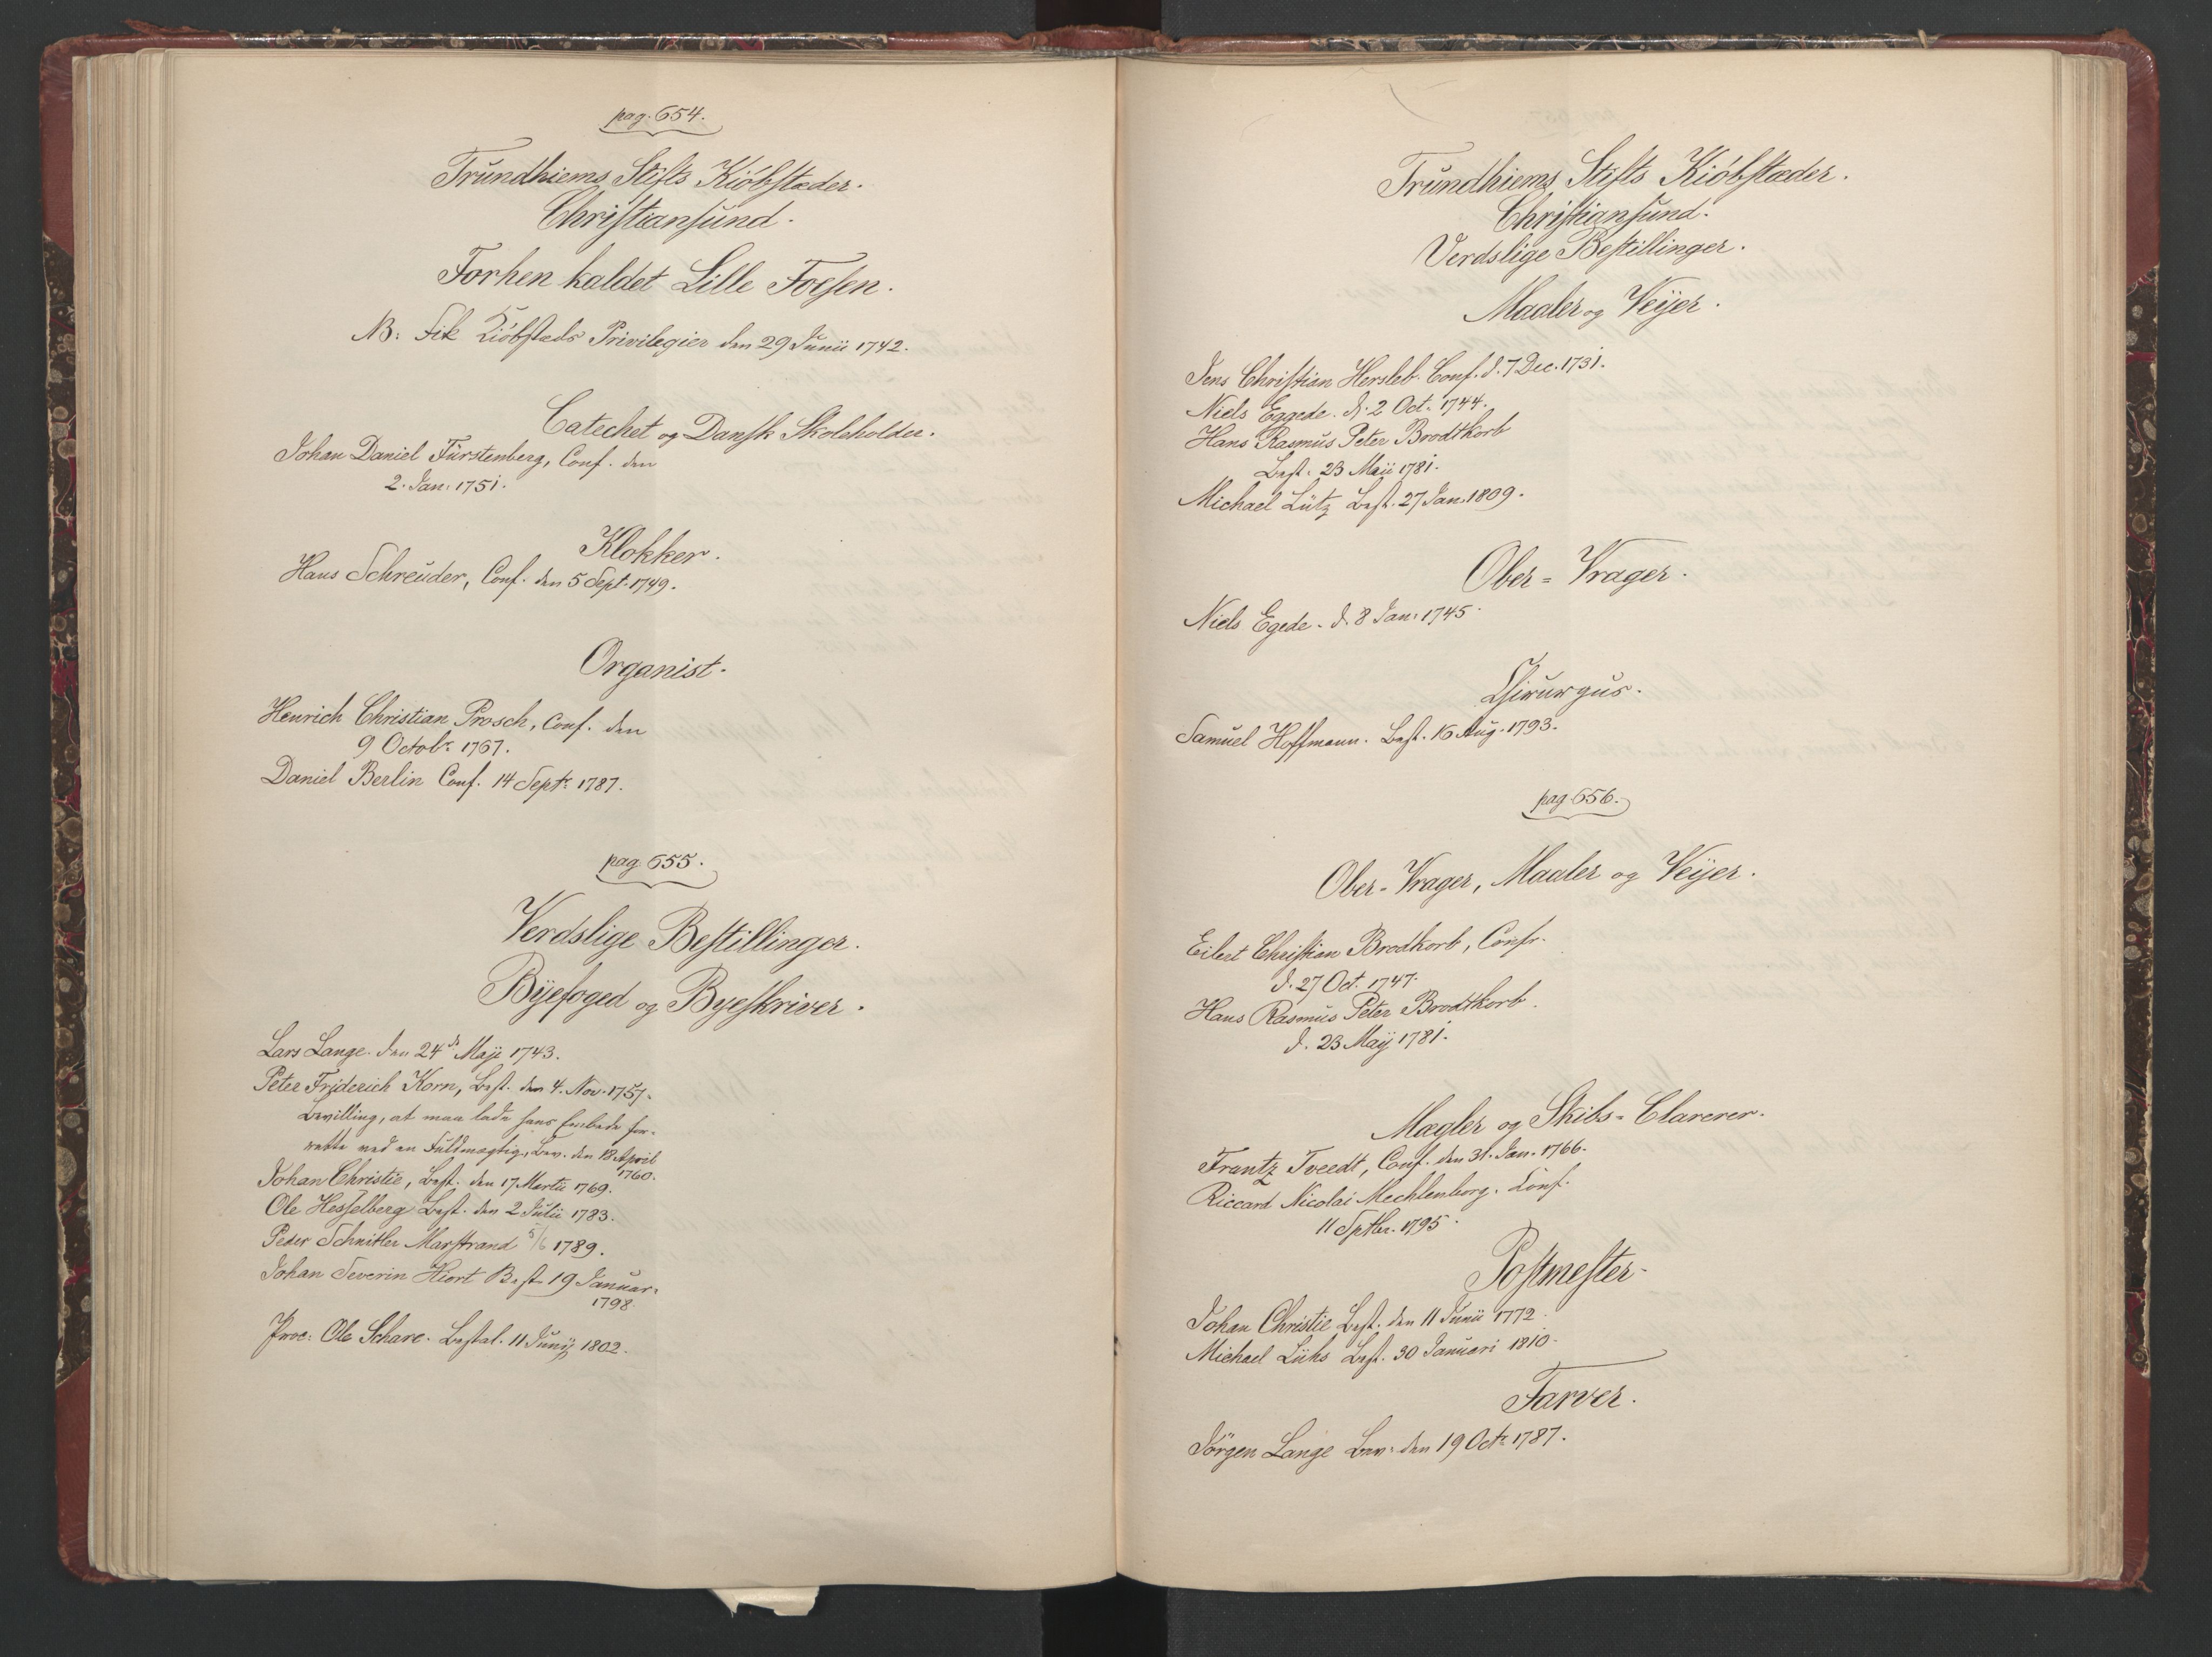 pag. 654.
Trundhiems Stifts Kiöbstæder.
Christiansund.
Forhen kaldet Lille Foesen.
NB: Fik Kiöbstads Privilegier den 29 Junii 1742.
Catechet og Dansk Skoleholder.
Johan Daniel Fürstenberg, Conf. den
2. Jan: 1751.
Klokker.
Hans Schreuder, Conf. den 5 Sept. 1749.
Organist.
Henrich Christian Prosch, Conf. den
9 Octobr. 1767.
Daniel Berlin Conf. 14 Septr. 1787.
pag. 655.
Verdslige Bestillinger.
Byefoged og Byeskriver.
Lars Lange. den 24de Maji 1743.
Peter Friderich Korn, Best. den 4. Nov. 1757.
Bevilling, at maa lade hans Embede for-
rette ved en Fuldmægtig, Bev. den 18 April
1760.
Johan Christie, Best. den 17 Martii 1769.
Ole Hesselberg Best. den 2 Julii 1783.
Peder Schnitler Marstrand 5/6 1789.
Johan Severin Hiort Best 19 Januar.
1798.
Proc: Ole Schare. Bestal. 11 Junij 1802.
Trundhiems Stifts Kiöbstæder.
Christiansund.
Verdslige Bestillinger.
Maaler og Veijer.
Jens Christian Hersleb. Conf. d. 7 Dec. 1731.
Niels Eggede. d. 2 Oct. 1744.
Hans Rasmus Peter Brodtkorb
Best. 23 Maii 1781.
Michael Lütz Best. 27 Jan. 1809.
Ober=Vrager.
Niels Egede. d. 8 Jan: 1745.
Chirurgus.
Samuel Hoffmann. Best. 16 Aug. 1793.
pag. 656.
Ober-Vrager, Maaler og Veijer.
Eilert Christian Brodkorb, Confr.
d. 27 Oct. 1747.
Hans Rasmus Peter Brodtkorb.
d. 23 Maij 1781.
Mægler og Skibs=Clarerer.
Frantz Tveedt, Conf. den 31. Jan. 1766.
Riccard Nicolai Mechlenborg. Conf.
11 Septbr. 1795.
Postmester.
Johan Christie Best. den 11 Junii 1772.
Michael Lühs Best. 30 Januari 1810.
Farver.
Jörgen Lange Bev: den 19 Octr. 1787.